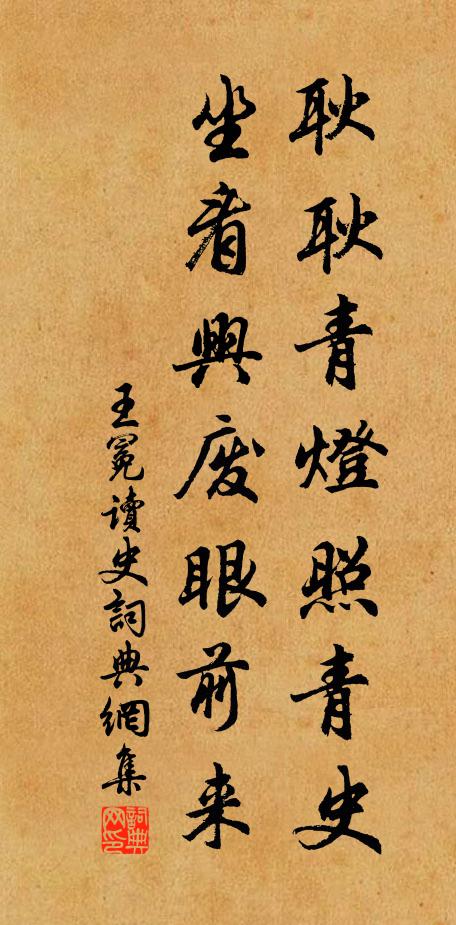 耿耿青燈照青史
坐看興废眼前来
王冕讀史詞典網集
詞典網印